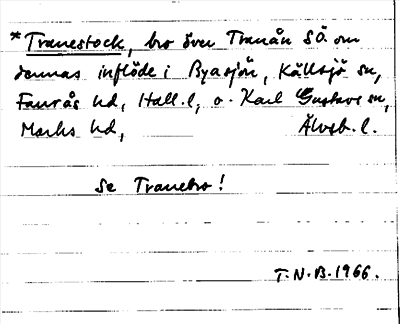 *Tranestock, bro över Tranån SÖ. om
dennas inflöde i Byasjön, Källsjö sn,
Faurås hd, Hall.l, o. Karl Gustavs sn,
Marks hd, Älvsb. l.
Se Tranebro!
T.N.B. 1966.